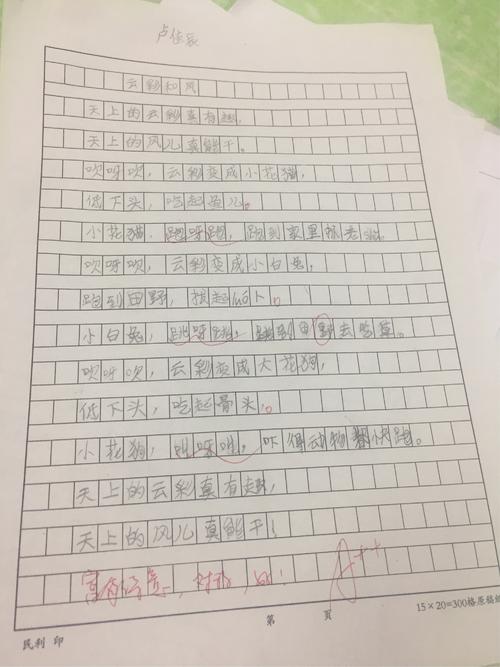 卢佳辰
云彩和风
天上的云彩真有趣,
天上的风儿真能干。
吹呀吹,云彩变成小花猫,
低下头,吃起鱼儿。
小花猫,跑呀跑,跑到家里抓老鼠。
吹呀吹,云彩变成小白兔,
跑到田野,拔起萝卜。
小白兔,跳呀跳,跳到田野去吃草。
吹呀吹,云彩变成大花狗,
低下头,吃起骨头。
小花狗,叫呀叫,吓得动物都快跑。
天上的云彩真有趣,
天上的风儿真能干!
富有诗意,对称,
A++
15×20=300格原稿纸
第 页
民利 印